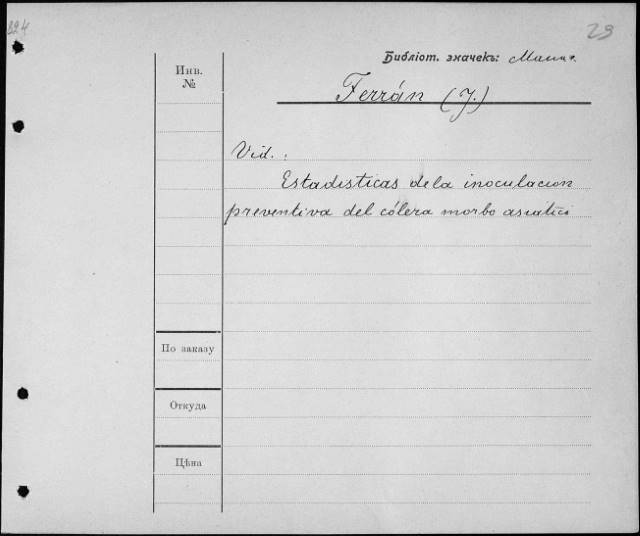 224 29
Библіот. значекъ:
Инв.
№
Ferrán (J.)
Vid.:
Estadisticas de la inoculacion
preventiva del cólera morbo asiatici
По заказу
Откуда
Цѣна